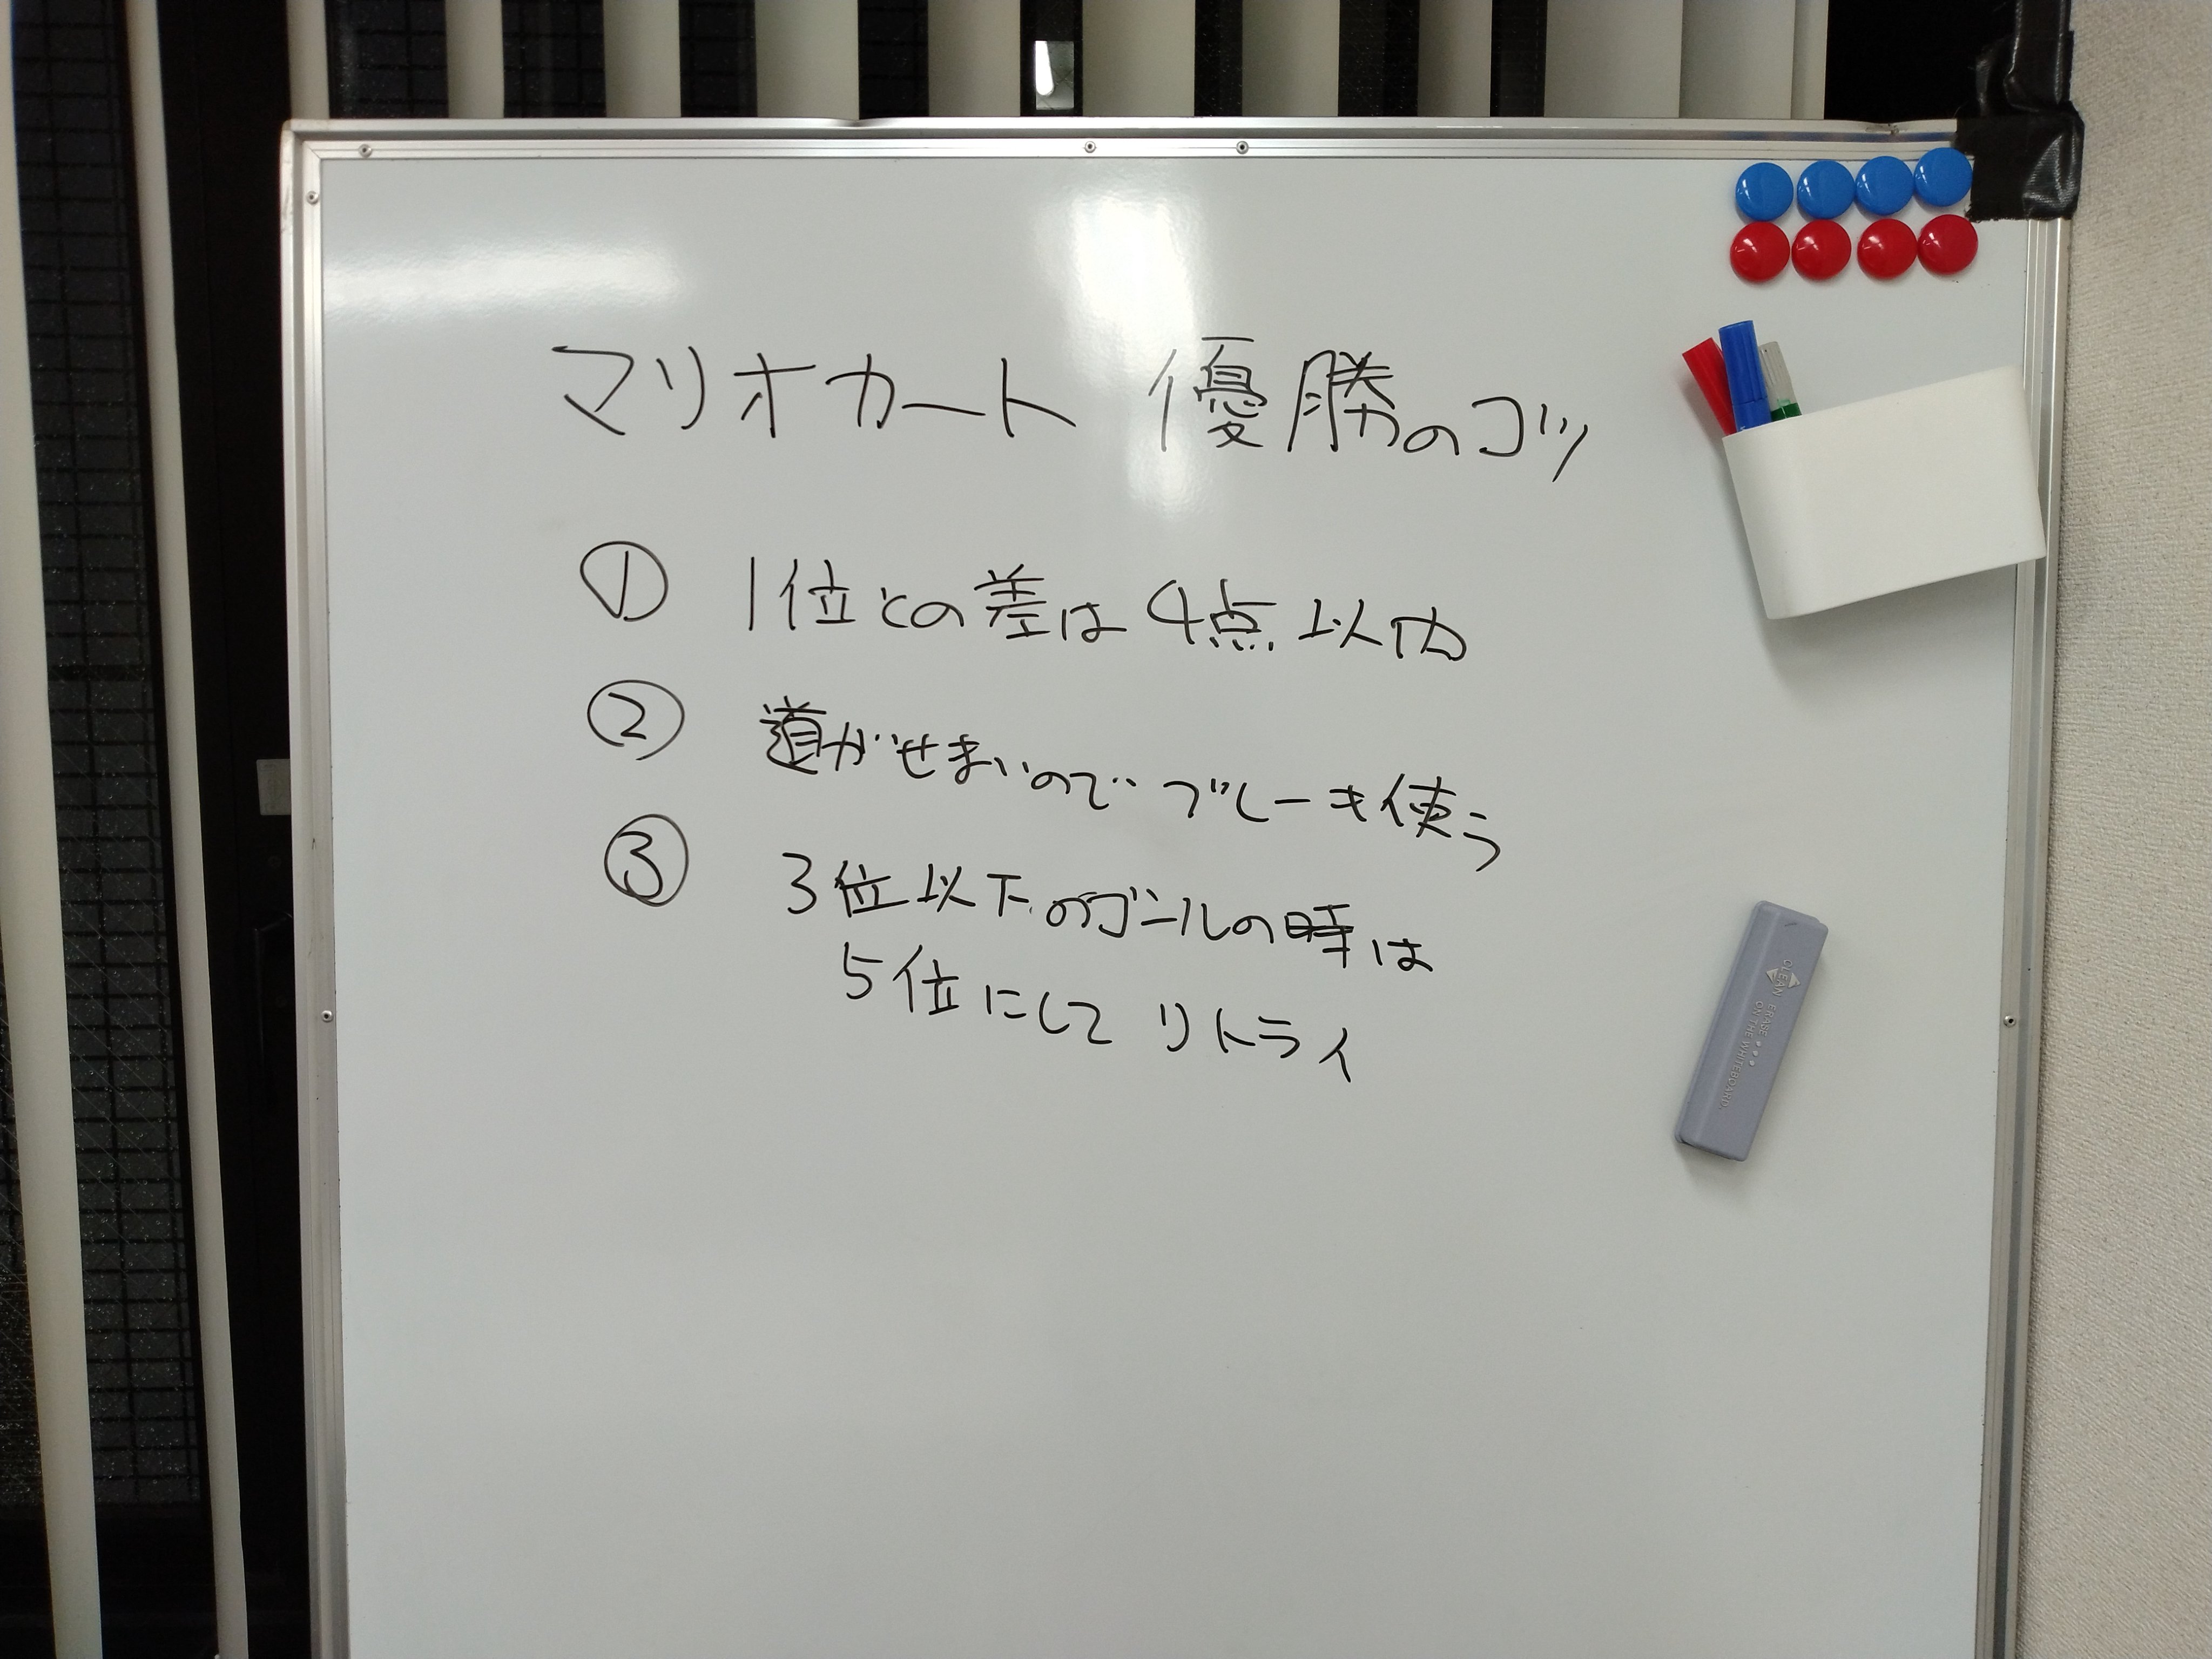 マリオカート 優勝のコツ
① 1位との差は4点以内
② 道がせまいのでブレーキ使う
③ 3位以下のゴールの時は
5位にしてリトライ
CLEAN ERASE
ON THE WHITEBOARD.